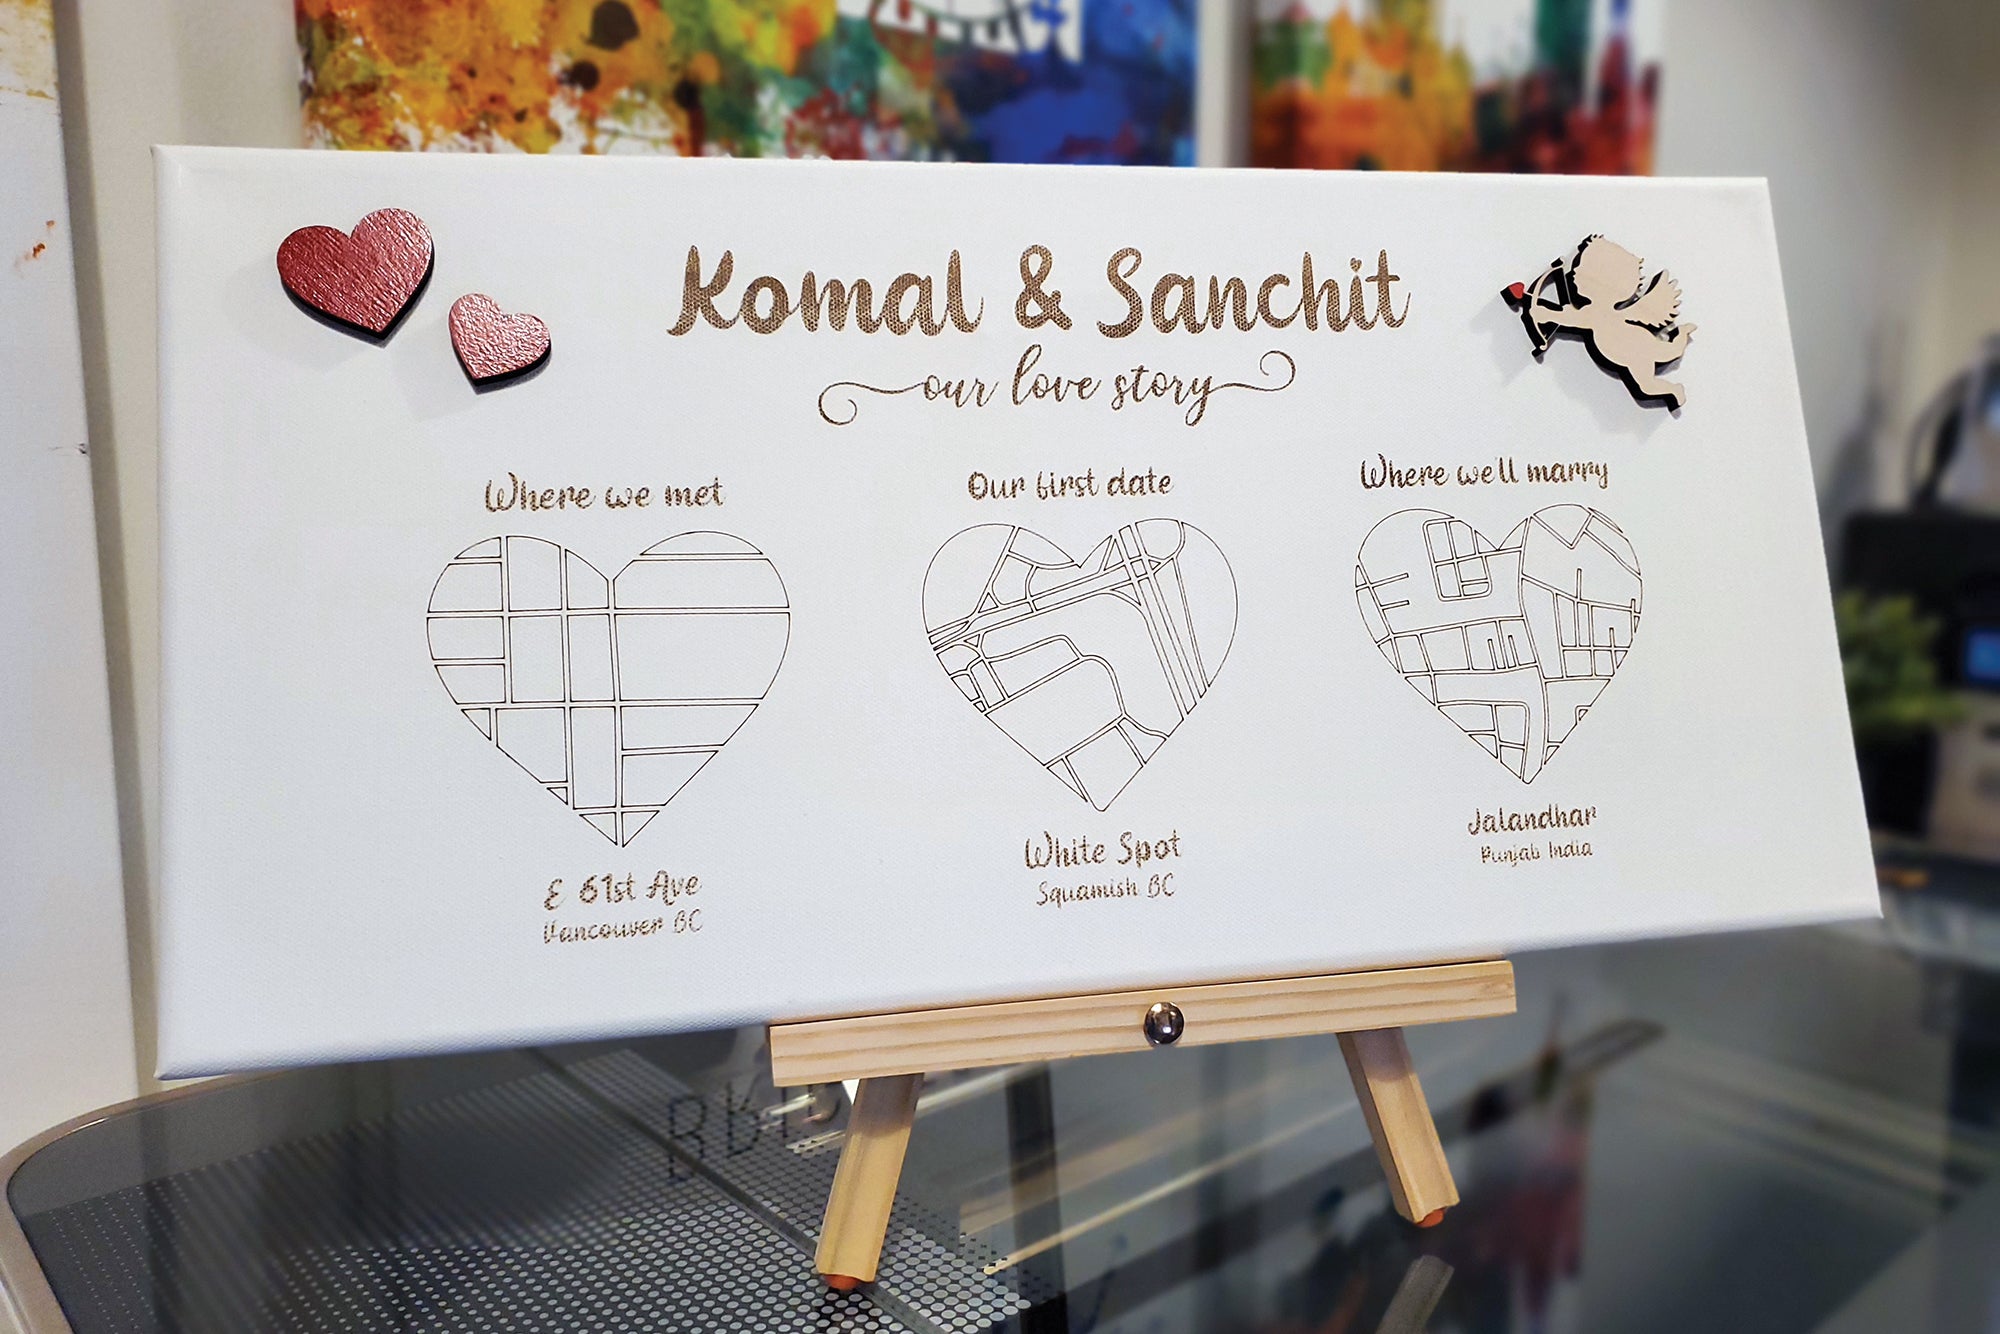 Komal & Sanchit
our love story
Where we met
Our first date
Where we'll marry
E 61st Ave
Vancouver BC
White Spot
Squamish BC
Jalandhar
Punjab India